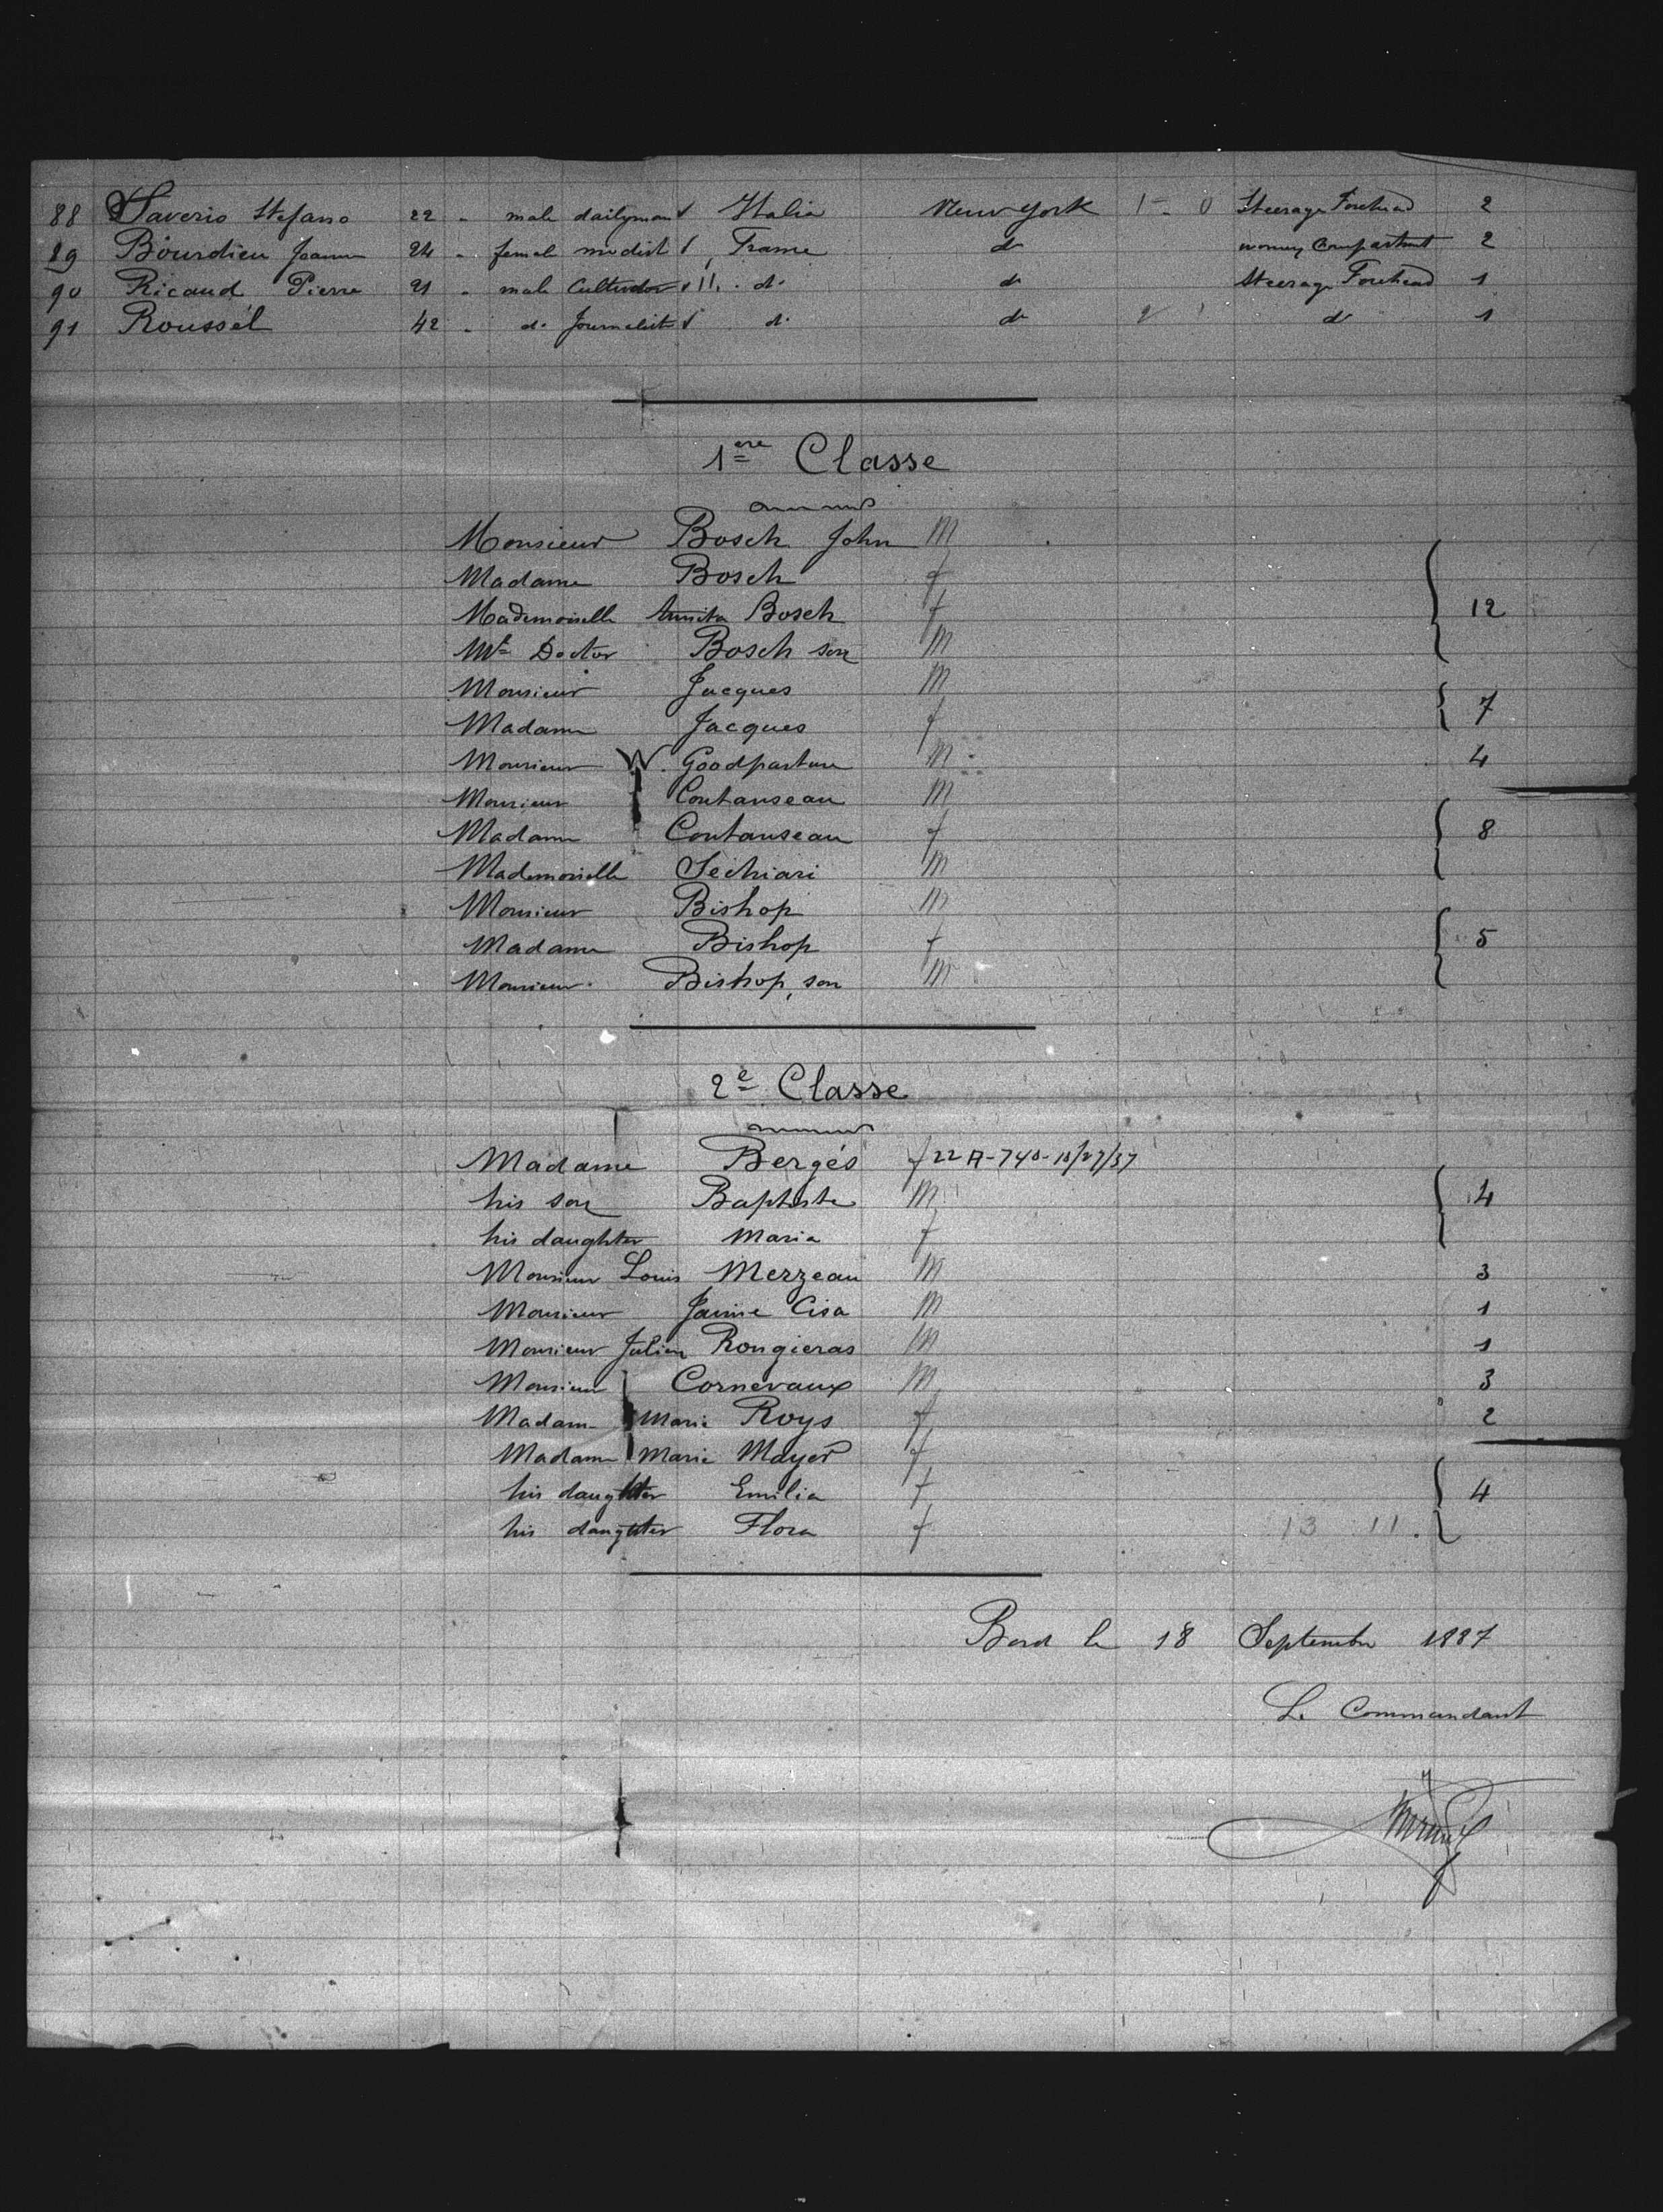 88 Saverio Stefano 22 " male dailyman Italia New York 1 - 0 Steerage Forehead 2
89 Bourdieu Jeanne 24 " female modist France do women Compartment 2
90 Ricaud Pierre 21 " male Cultivator 11 do do Steerage Forehead 1
91 Roussel 42 " do Journalist do do do 1
1ere Classe
Monsieur Bosch John M
Madame Bosch f
Mademoiselle Annita Bosch f 12
Mr Doctor Bosch son M
Monsieur Jacques M 7
Madame Jacques f
Monsieur W. Goodpasture M 4
Monsieur Contanseau M
Madame Contanseau f 8
Mademoiselle Sechiari M
Monsieur Bishop M
Madame Bishop f 5
Monsieur Bishop, son M
2e Classe
Madame Bergés f 22 A-740-10/27/37
his son Baptiste M 4
his daughter Maria f
Monsieur Louis Merzeau M 3
Monsieur Jaime Cisa M 1
Monsieur Julien Rongieras M 1
Monsieur Cornevaux M 3
Madame Marie Roys f 2
Madame Marie Mayer f
his daughter Emilia f 4
his daughter Flora f 13 11
Bord le 18 Septembre 1887
Le Commandant